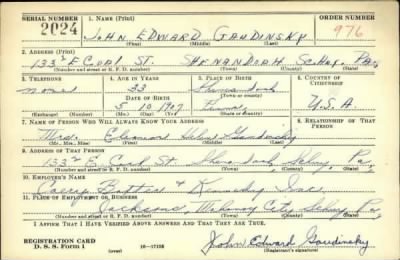 SERIAL NUMBER 1. NAME (Print) ORDER NUMBER
2024 JOHN EDWARD GAUDINSKY 976
(First) (Middle) (Last)
2. ADDRESS (Print)
133½ E. COAL ST. SHENANDOAH SCHUY. PA.
(Number and street or R. F. D. number) (Town) (County) (State)
3. TELEPHONE 4. AGE IN YEARS 5. PLACE OF BIRTH 6. COUNTRY OF CITIZENSHIP
none 33 Shenandoah
DATE OF BIRTH (Town or county)
5 10 1907 Penna. U.S.A.
(Exchange) (Number) (Mo.) (Day) (Yr.) (State or country)
7. NAME OF PERSON WHO WILL ALWAYS KNOW YOUR ADDRESS 8. RELATIONSHIP OF THAT PERSON
Mrs. Gaudinsky
(Mr., Mrs., Miss) (First) (Middle) (Last)
9. ADDRESS OF THAT PERSON
133½ E. Coal St. Shenandoah, Schuy, Pa.
(Number and street or R. F. D. number) (Town) (County) (State)
10. EMPLOYER'S NAME
Kennedy Inc.
11. PLACE OF EMPLOYMENT OR BUSINESS
Jacksons, Mahanoy City, Schuy, Pa.
(Number and street or R. F. D. number) (Town) (County) (State)
I AFFIRM THAT I HAVE VERIFIED ABOVE ANSWERS AND THAT THEY ARE TRUE.
REGISTRATION CARD
D. S. S. Form 1 (over) 16—17105 John Edward Gaudinsky